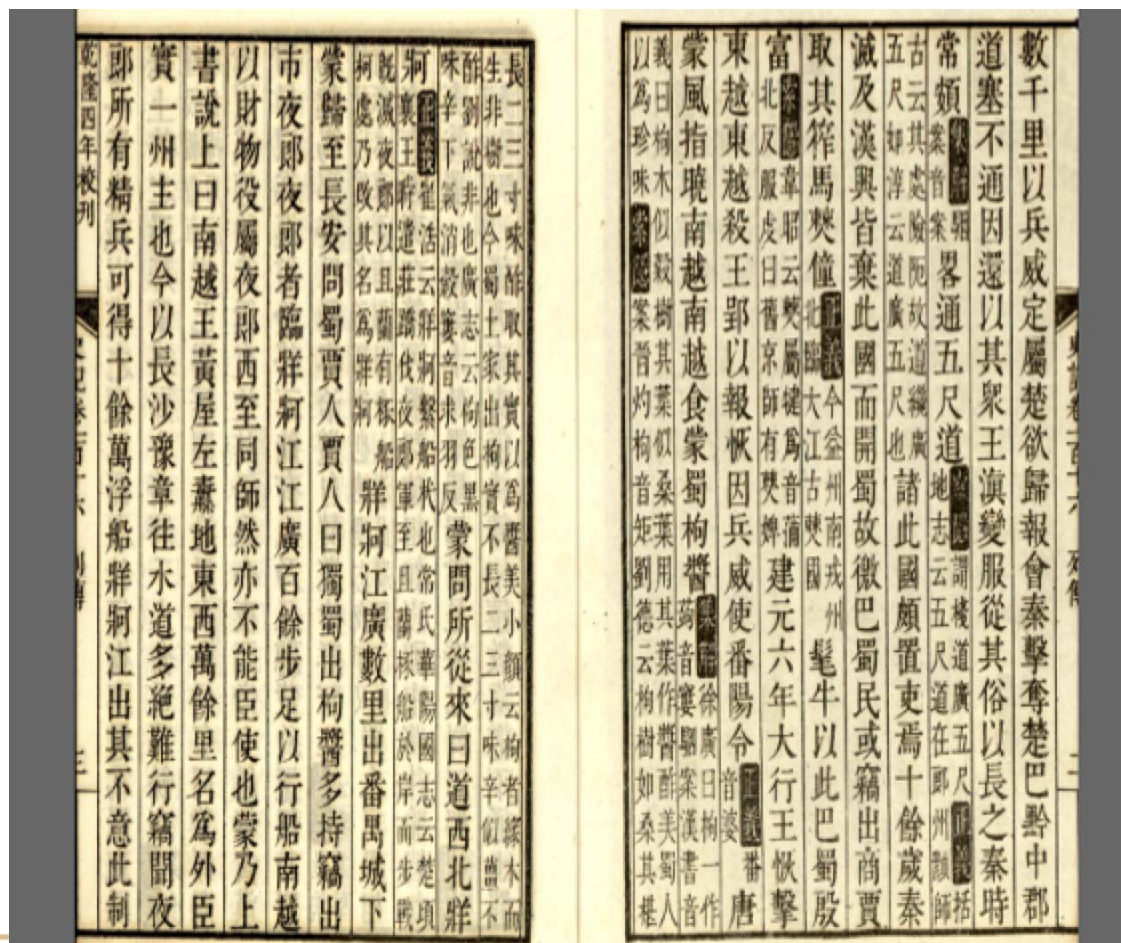 數千里以兵威定屬楚欲歸報會秦擊奪楚巴黔中郡
道塞不通因還以其衆王滇變服從其俗以長之秦時
常頞
案音案
畧通五尺道
索隱謂棧道廣五尺正義括
地志云五尺道在郎州顏師
古云其處險阨故道纔廣
五尺如淳云道廣五尺也
諸此國頗置吏焉十餘歲秦
滅及漢興皆棄此國而開蜀故徼巴蜀民或竊出商賈
取其筰馬僰僮
正義今益州南戎州
北臨大江古僰國
髦牛以此巴蜀殷
富
索隱韋昭云僰屬犍爲音蒲
北反服虔曰舊京師有僰婢
建元六年大行王恢擊
東越東越殺王郢以報恢因兵威使番陽令
正義番
音婆
唐
蒙風指曉南越南越食蒙蜀枸醬
集解徐廣曰枸一作
蒟音窶騶案漢書音
義曰枸木似穀樹其葉似桑葉用其葉作醬酢美蜀人
以爲珍味索隱案晉灼枸音矩劉德云枸樹如桑其椹
長二三寸味酢取其實以爲醬美小顏云枸者緣木而
生非樹也今蜀土家出枸實不長二三寸味辛似薑不
酢劉說非也廣志云枸色黑
味辛下氣消穀窶音求羽反
蒙問所從來曰道西北牂
牁
正義崔浩云牂牁繫船杙也常氏華陽國志云楚頃
襄王時遣莊蹻伐夜郎軍至且蘭椓船於岸而步戰
旣滅夜郎以且蘭有椓船
牁處乃改其名爲牂牁
牂牁江廣數里出番禺城下
蒙歸至長安問蜀賈人賈人曰獨蜀出枸醬多持竊出
市夜郎夜郎者臨牂牁江江廣百餘步足以行船南越
以財物役屬夜郎西至同師然亦不能臣使也蒙乃上
書說上曰南越王黃屋左纛地東西萬餘里名爲外臣
實一州主也今以長沙豫章往水道多絕難行竊聞夜
郎所有精兵可得十餘萬浮船牂牁江出其不意此制
乾隆四年校刋